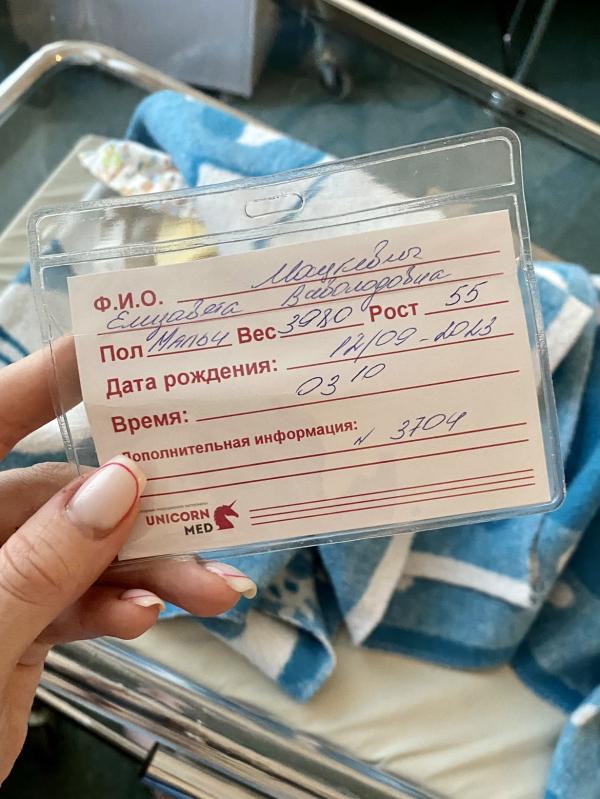 Ф.И.О.
Елизавета Всеволодовна
Пол Мальч Вес 3980 Рост 55
Дата рождения: 12/09-2023
Время: 03 10
Дополнительная информация: N 3704
UNICORN
MED